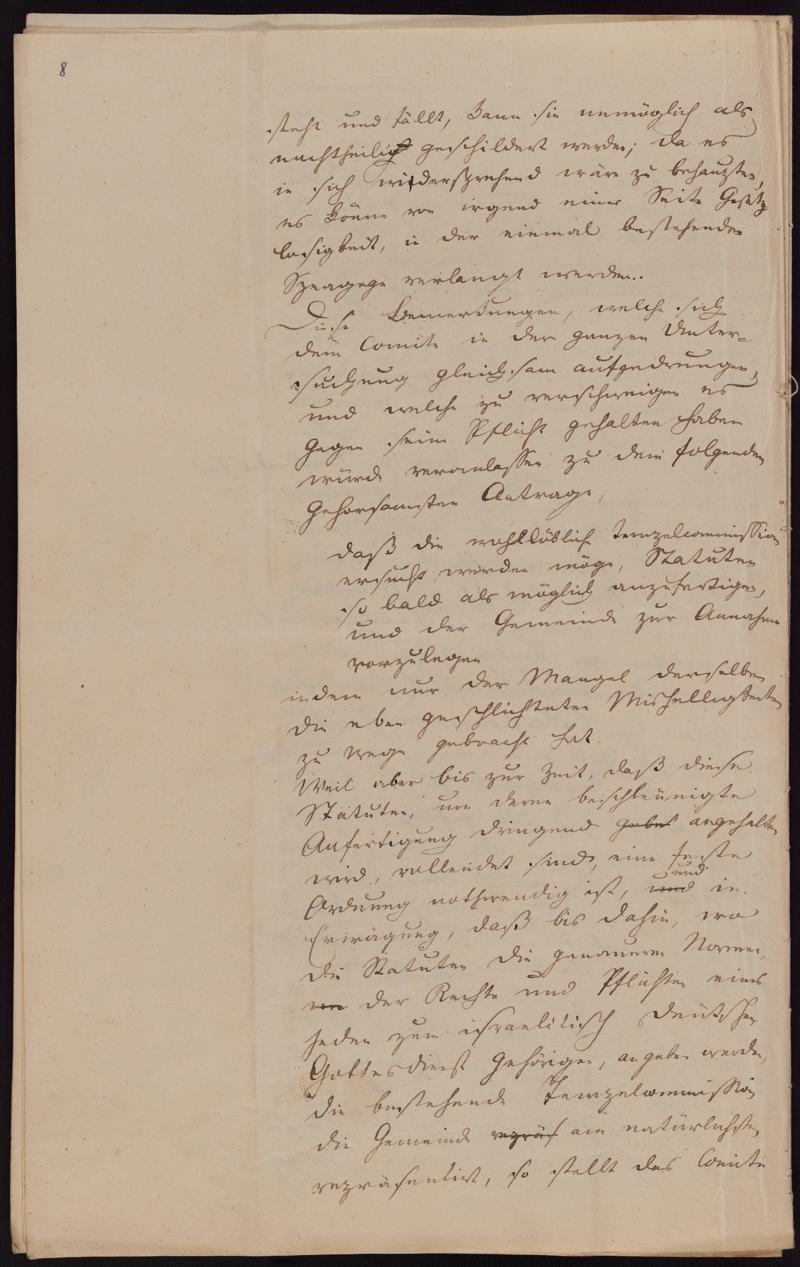 8
steht und fällt, kann sie unmöglich als
nachtheilig geschildert werden; da es
in sich widersprechend wäre zu behaupten,
es könne von irgend einer Seite Gesetz
losigkeit, in der einmal bestehenden
Synagoge verlangt werden.
Diese Bemerkungen, welche sich
dem Comite in der ganzen Unter-
suchung gleichsam aufgedrungen,
und welche zu verschweigen es
gegen seine Pflicht gehalten haben
würde veranlassen zu dem folgenden
gehorsamsten Antrage,
daß die wohllöbliche Tempelcommission
ersucht werden möge, Statuten
so bald als möglich anzufertigen,
und der Gemeinde zur Annahme
vorzulegen
indem nur der Mangel derselben
die eben geschlichteten Mishelligkeiten
zu Wege gebracht hat.
Weil aber bis zur Zeit, daß diese
Statuten, um deren beschleunigte
Anfertigung dringend gebet angehalten
wird, vollendet sind, eine feste
und
Ordnung nothwendig ist, und in
Erwägung, daß bis dahin, wo
die Statuten die genaueren Normen,
der Rechte und Pflichten eines
jeden zum israelitisch deutschen
Gottesdienst gehörigen, angeben werden,
die bestehende Tempelcommission
die Gemeinde repräs am natürlichsten
repräsentirt, so stellt das Comite